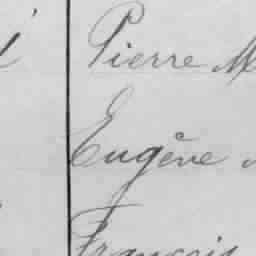 Pierre M
Eugène
François